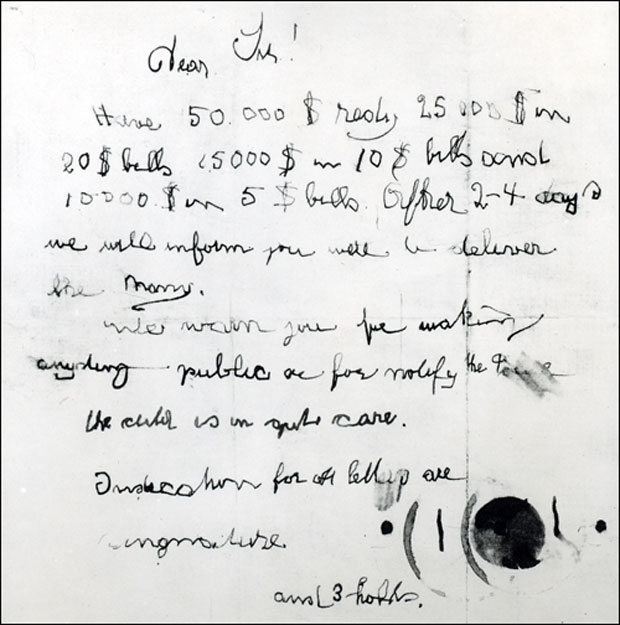 Dear Sir!
Have 50.000 $ redy 25 000 $ in
20 $ bills 15000 $ in 10 $ bills and
10000 $ in 5 $ bills. After 2-4 days
we will inform you were to deliver
the Mony.
we warn you for making
anyding public or for notify the
the child is in gut care.
Indication for all letters are
singnature
and 3 holds.